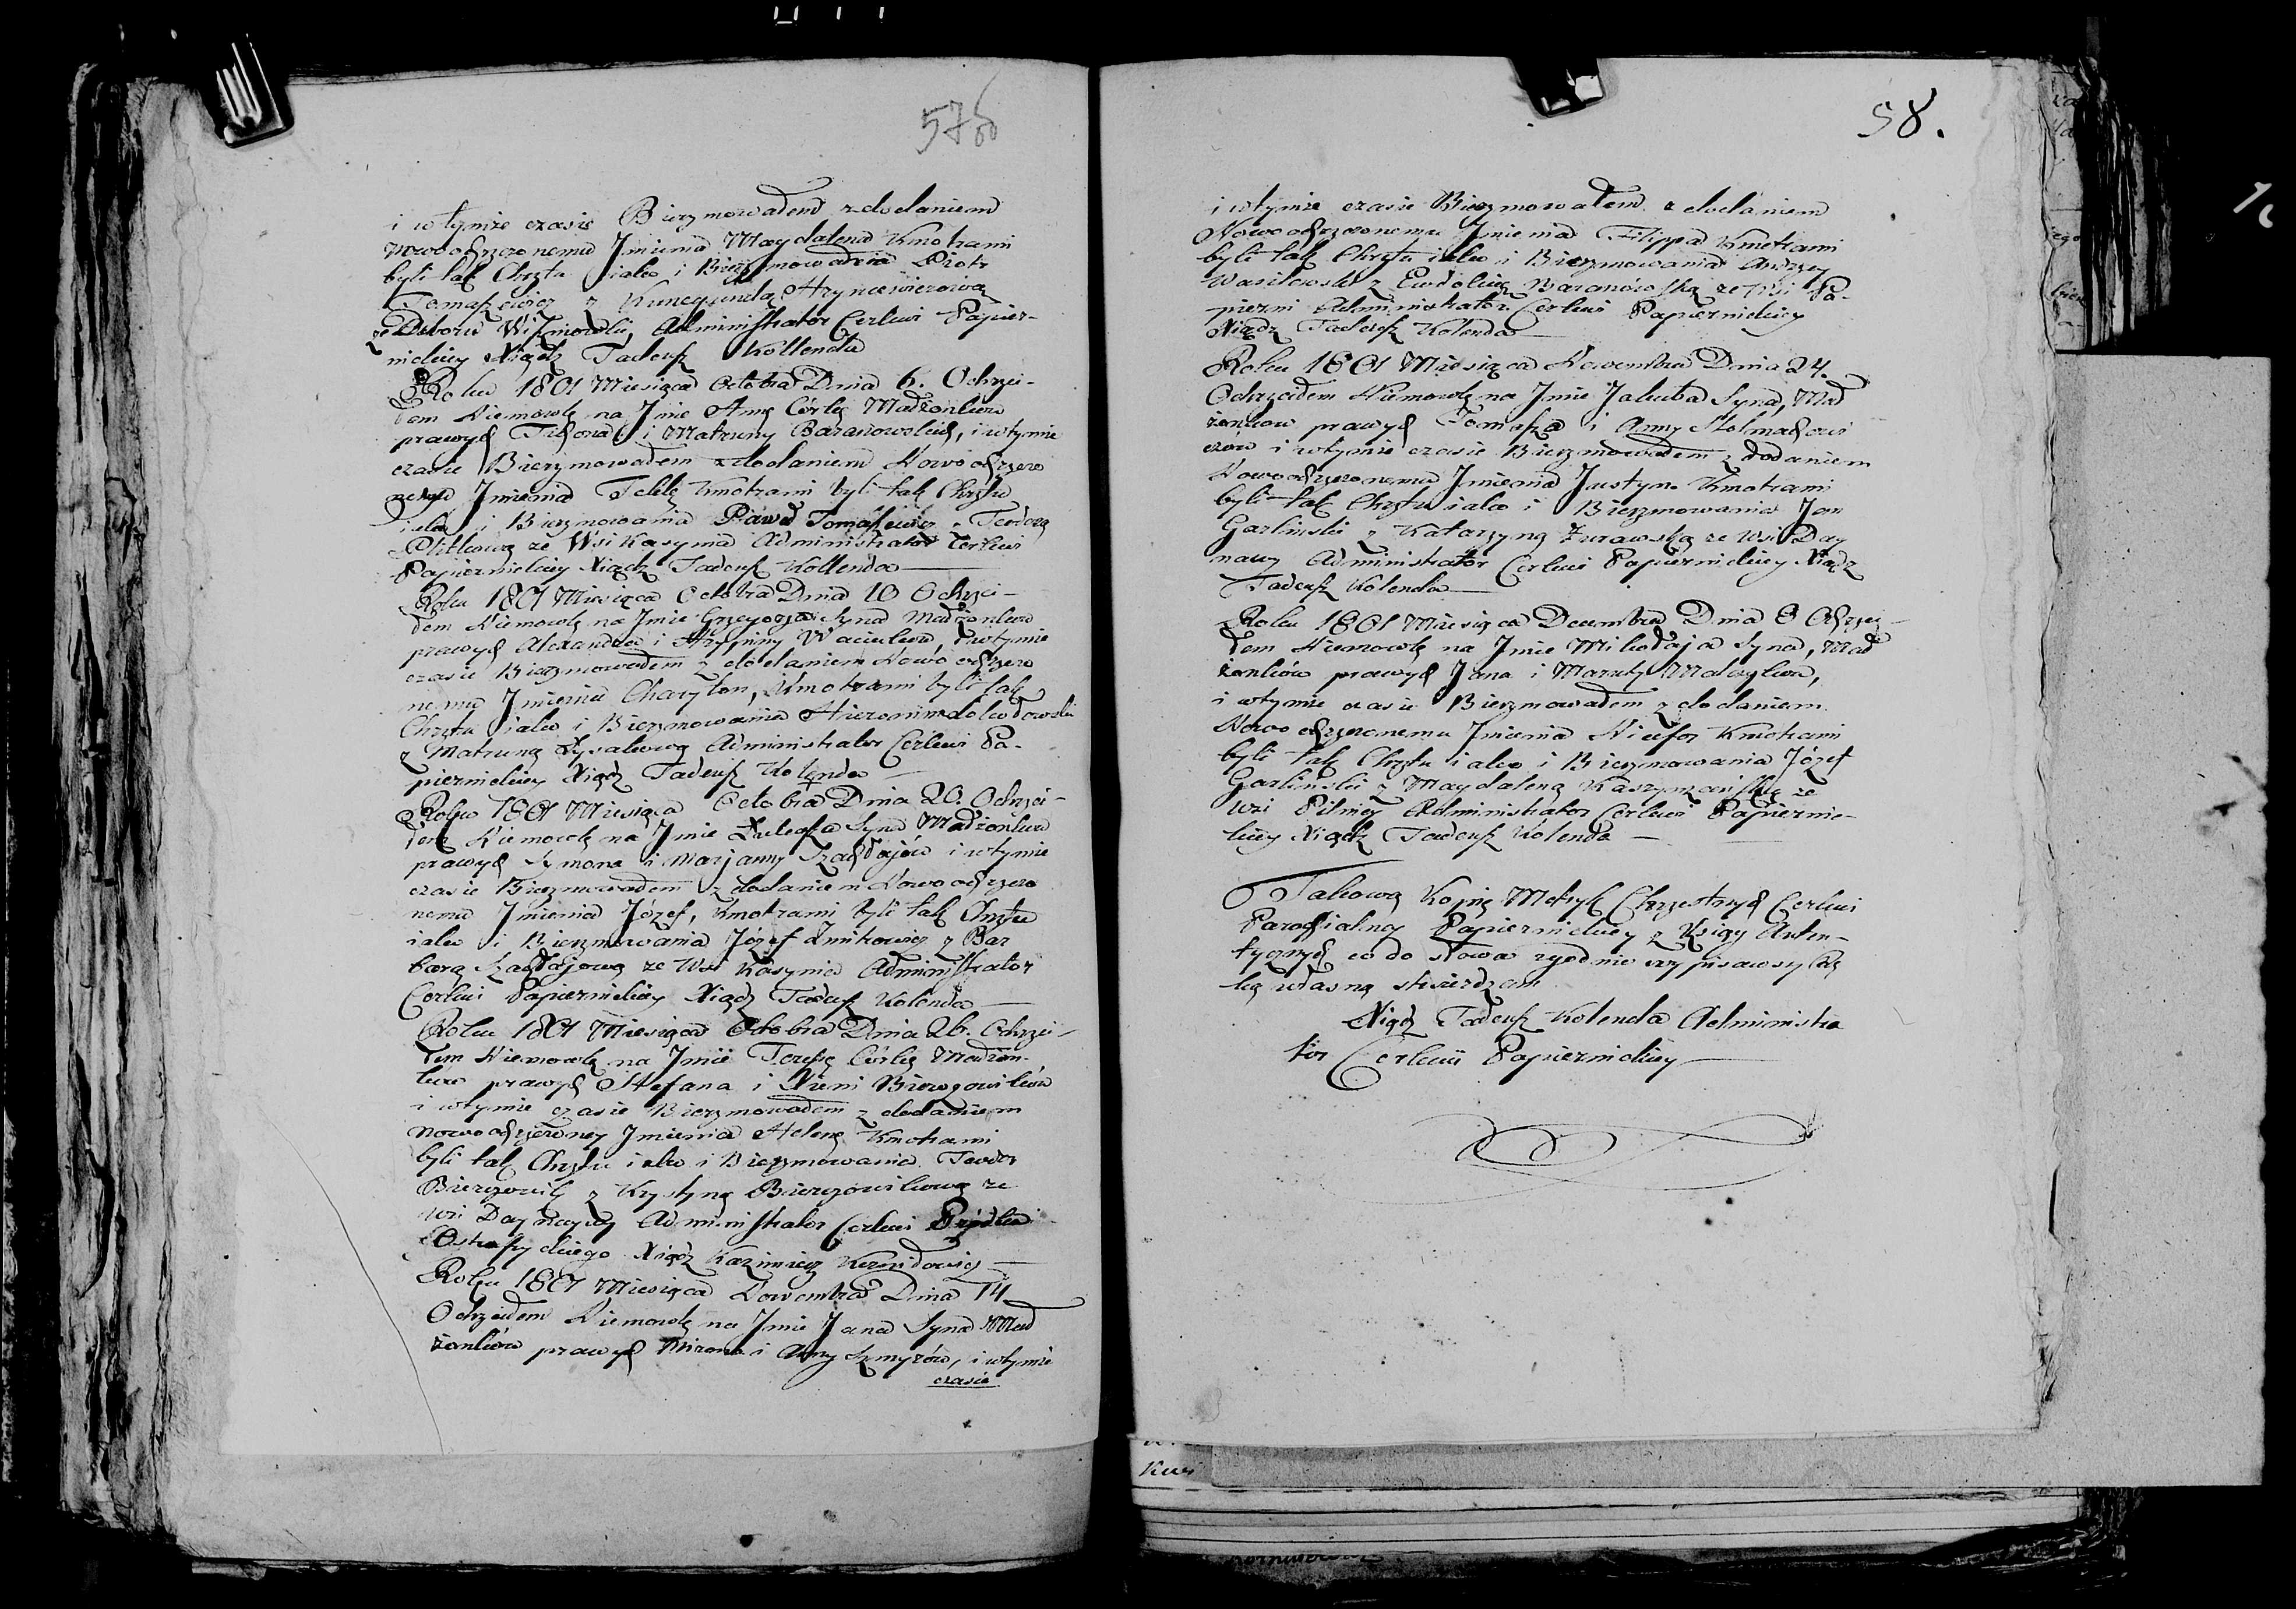 57 об
i wtymże czasie Bierzmowałem z dodaniem
Nowoochrzczonemu Jmienia Maydalena Kmotrami
byli tak Chrztu iako i Bierzmowania Piotr
Tomaszewicz z Kunegundą Hryncewiczową
ze Dworu Administrator Cerkwi Papier-
nickiey Xiądz Tadeusz Kollenda
Roku 1801 Miesiąca Octobra Dnia 6. Ochrzci-
łem Niemowlę na Jmie Annę Córkę Małżonków
prawych Tichona i Matruny Baranowskich, i wtymże
czasie Bierzmowałem z dodaniem Nowoochrzczo
ney Jmienia Teklę Kmotrami byli tak Chrztu
iako i Bierzmowania Paweł Tomaszewicz z Teodorą
Plitkową ze Wsi Kasyma Administrator Cerkwi
Papiernickiey Xiądz Tadeusz Kollenda
Roku 1801 Miesiąca Octobra Dnia 10 Ochrzci-
łem Niemowlę na Jmie Grzegorza Syna Małżonków
prawych Alexandra i Ahryniny Waciuków, i wtymże
czasie Bierzmowałem z dodaniem Nowo ochrzczo
nemu Jmieniu Charyton, Kmotrami byli tak
Chrztu iako i Bierzmowania Hieronim
z Matruną Łysakową Administrator Cerkwi Pa-
piernickiey Xiądz Tadeusz Kolenda
Roku 1801 Miesiąca Octobra Dnia 20. Ochrzci-
łem Niemowlę na Jmie Łukasza Syna Małżonków
prawych Symona i Marjanny Szachłajów i wtymże
czasie Bierzmowałem z dodaniem Nowoochrzczo
nemu Jmienia Józef, Kmotrami byli tak Chrztu
iako i Bierzmowania Józef Żmitrowicz z Bar
barą Szachłajową ze Wsi Kasynia Administrator
Cerkwi Papiernickiey Xiądz Tadeusz Kolenda
Roku 1801 Miesiąca Octobra Dnia 26. Ochrzci-
łem Niemowlę na Jmie Teresę Córkę Małżon-
ków prawych Stefana i Xieni Biezgowików
i wtymże czasie Bierzmowałem z dodaniem
nowoochrzczoney Jmienia Helenę Kmotrami
byli tak Chrztu iako i Bierzmowania Teodor
z Krystyną ze
wsi Daynawy Administrator Cerkwi
Xiądz Kazimierz
Roku 1801 Miesiąca Nowembra Dnia 14
Ochrzciłem Niemowlę na Jmie Jana Syna Mał
żonków prawych Mirona i Anny Szmyrów, i wtymże
czasie
58.
i wtymże czasie Bierzmowałem z dodaniem
Nowoochrzczonemu Jmienia Filippa Kmotrami
byli tak Chrztu iako i Bierzmowania Andrzey
Wasilewski z Ewdokią Baranowską ze Wsi Pa-
pierni Administrator Cerkwi Papiernickiey
Xiądz Tadeusz Kolenda
Roku 1801 Miesiąca Nowembra Dnia 24.
Ochrzciłem Niemowlę na Jmie Jakuba Syna, Mał
żonkow prawych Tomasza i Anny Stolmachowi
czów i wtymże czasie Bierzmowałem z dodaniem
Nowoochrzczonemu Jmienia Justyn. Kmotrami
byli tak Chrztu iako i Bierzmowania Jan
Garliński z Katarzyną Żurawską ze Wsi Day
nawy Administrator Cerkwi Papiernickiey Xiądz
Tadeusz Kolenda
Roku 1801 Miesiąca Decembra Dnia 8 Ochrzci-
łem Niemowlę na Jmie Mikołaja Syna, Mał
żonków prawych Jana i Maruty
i wtymże czasie Bierzmowałem z dodaniem
Nowo ochrzczonemu Jmienia Nicefor Kmotrami
byli tak Chrztu iako i Bierzmowania Józef
Garliński z Maydaleną Kaszymańską ze
wsi Pilnicy Administrator Cerkwi Papiernic-
kiey Xiądz Tadeusz Kolenda
Takową Kopię Metryk Chrzestnych Cerkwi
Parochialney Papiernickiey z Księgi Auten-
tycznych co do słowa zgodnie wypisawszy Rę
ką własną stwierdzam
Xiądz Tadeusz Kolenda Administra
tor Cerkwii Papiernickiey